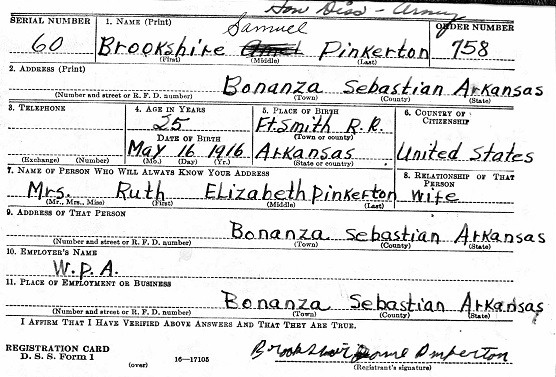 Hon Diss - Army
SERIAL NUMBER 1. NAME (Print) Samuel ORDER NUMBER
60 Brookshire Pinkerton 758
(First) (Middle) (Last)
2. ADDRESS (Print)
Bonanza Sebastian Arkansas
(Number and street or R. F. D. number) (Town) (County) (State)
3. TELEPHONE 4. AGE IN YEARS 5. PLACE OF BIRTH 6. COUNTRY OF CITIZENSHIP
25 Ft. Smith R.R.
DATE OF BIRTH (Town or county)
May 16 1916 Arkansas United States
(Exchange) (Number) (Mo.) (Day) (Yr.) (State or country)
7. NAME OF PERSON WHO WILL ALWAYS KNOW YOUR ADDRESS 8. RELATIONSHIP OF THAT PERSON
Mrs. Ruth Elizabeth Pinkerton Wife
(Mr., Mrs., Miss) (First) (Middle) (Last)
9. ADDRESS OF THAT PERSON
Bonanza Sebastian Arkansas
(Number and street or R. F. D. number) (Town) (County) (State)
10. EMPLOYER'S NAME
W.P.A.
11. PLACE OF EMPLOYMENT OR BUSINESS
Bonanza Sebastian Arkansas
(Number and street or R. F. D. number) (Town) (County) (State)
I AFFIRM THAT I HAVE VERIFIED ABOVE ANSWERS AND THAT THEY ARE TRUE.
REGISTRATION CARD
D. S. S. Form 1 (over) 16—17105
(Registrant's signature)